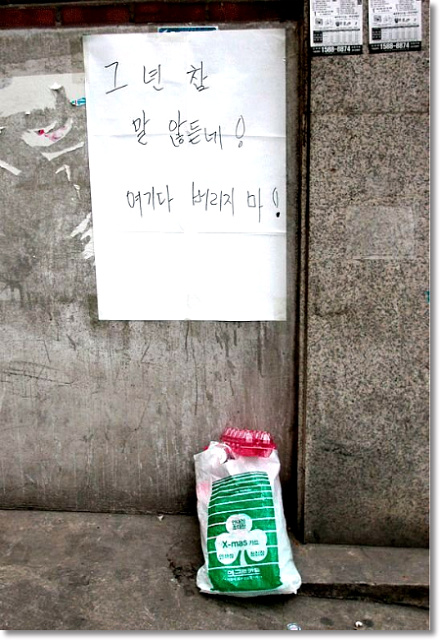 1588-8874
1588-8874
그 년 참
말 않듣네!
여기다 버리지 마!
X-mas